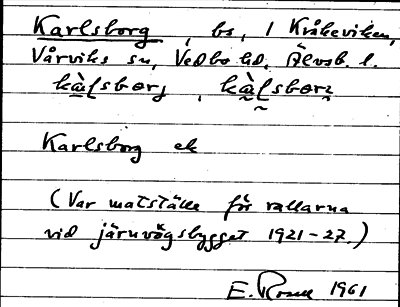 Karlsborg, bs, / Kråkeviken,
Vårviks sn, Vedbo hd, Älvsb. l.
kàḷsbørj, kàḷsbørj
Karlsborg ek
(Var matställe för rallarna
vid järnvägsbygget 1921-27.)
E. Rosell 1961